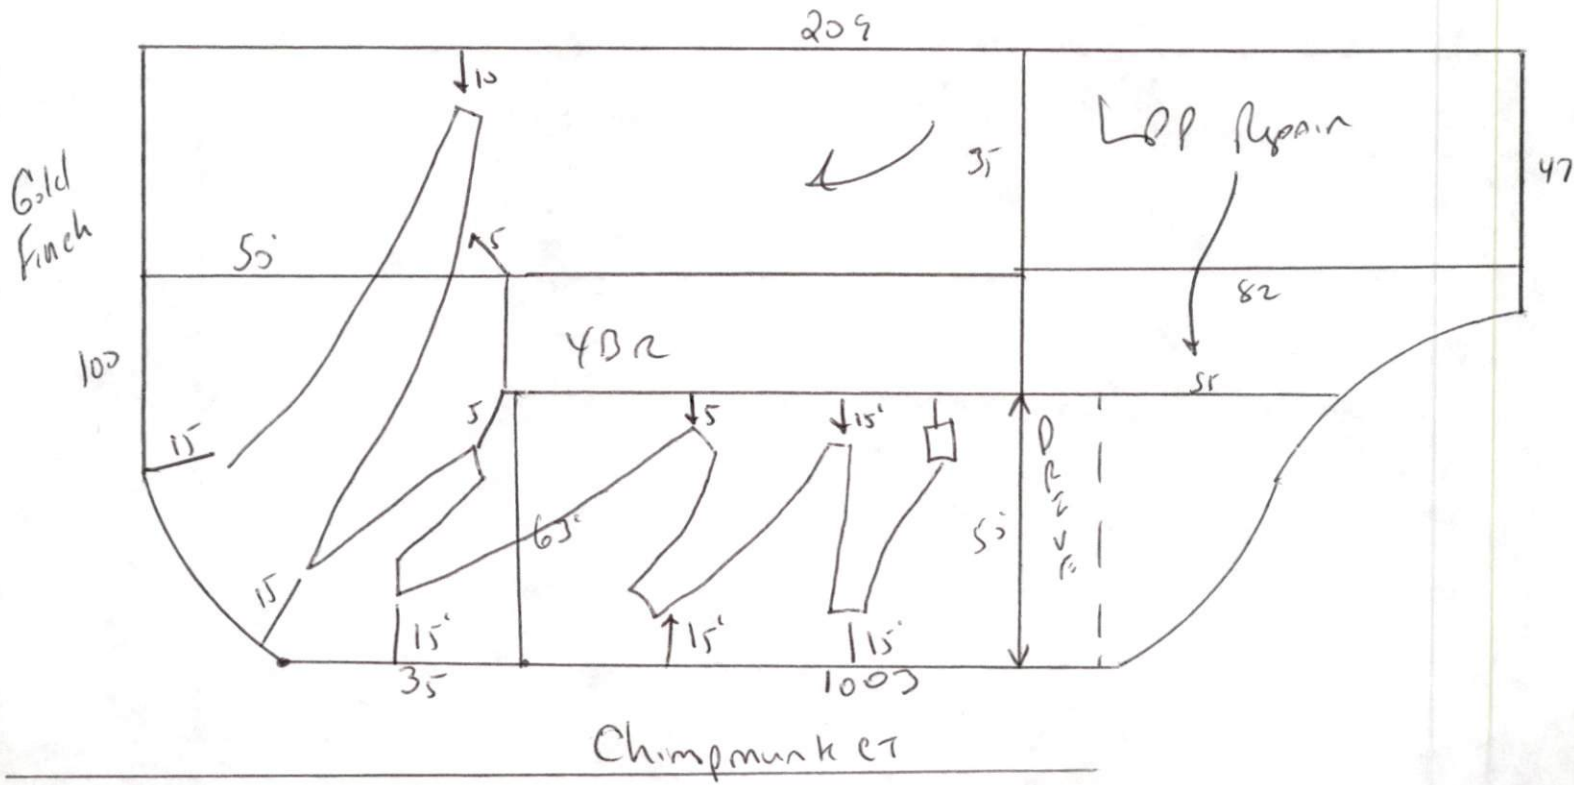 209
↓10
LPP Repair
35
47
Gold
Finch
50'
5
82
100
4BR
55
5
5
15'
DRIVE
15
63'
50'
15
15'
15'
15'
35
1003
Chimpmunk CT